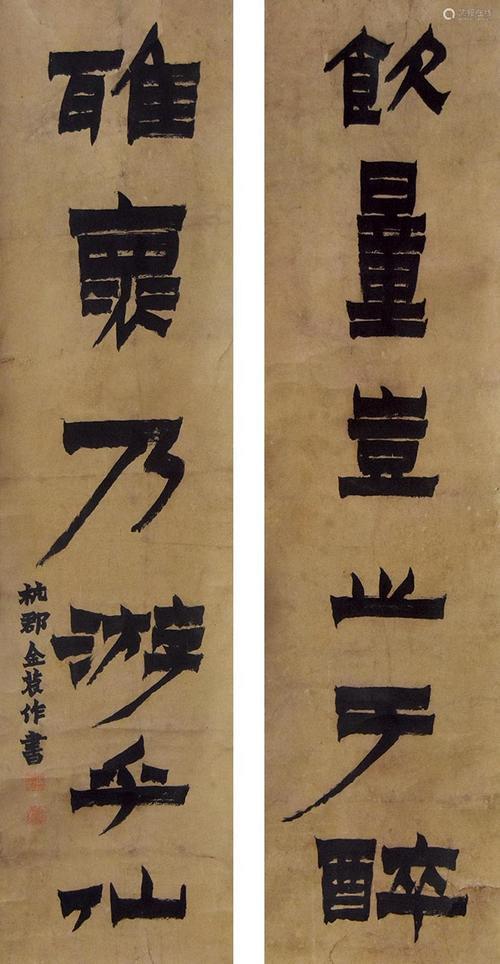 飲量豈止于醉
雅褱乃游乎仙
杭郡金農作書